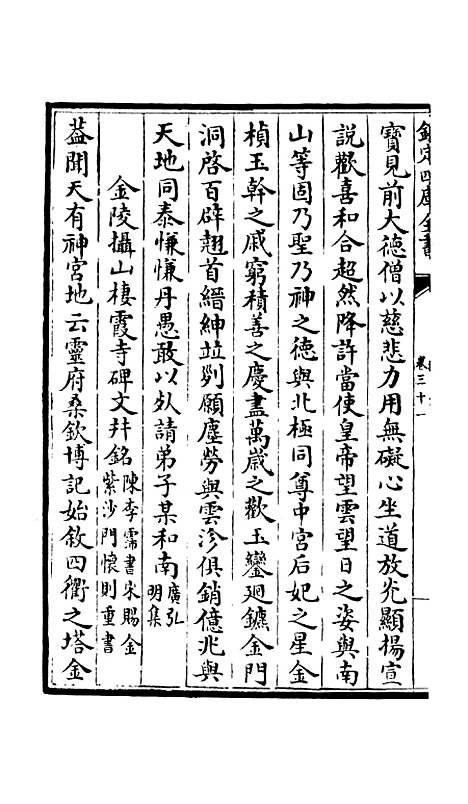 欽定四庫全書
卷三十一
寶見前大德僧以慈悲力用無礙心坐道放光顯揚宣
說歡喜和合超然降許當使皇帝望雲望日之姿與南
山等固乃聖乃神之德與北極同尊中宫后妃之星金
楨玉幹之戚窮積善之慶盡萬歳之歡玉鑾廻鑣金門
洞啓百辟翹首縉紳竝列願塵勞與雲沴俱銷億兆與
天地同泰慊慊丹愚敢以死請弟子某和南廣弘
明集
金陵攝山棲霞寺碑文幷銘陳李霈書宋賜金
紫沙門懷則重書
葢聞天有神宮地云靈府桑欽博記始敘四衢之塔金